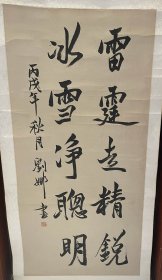 雷霆走精銳
冰雪净聰明
丙戌年 秋月 劉娜 書